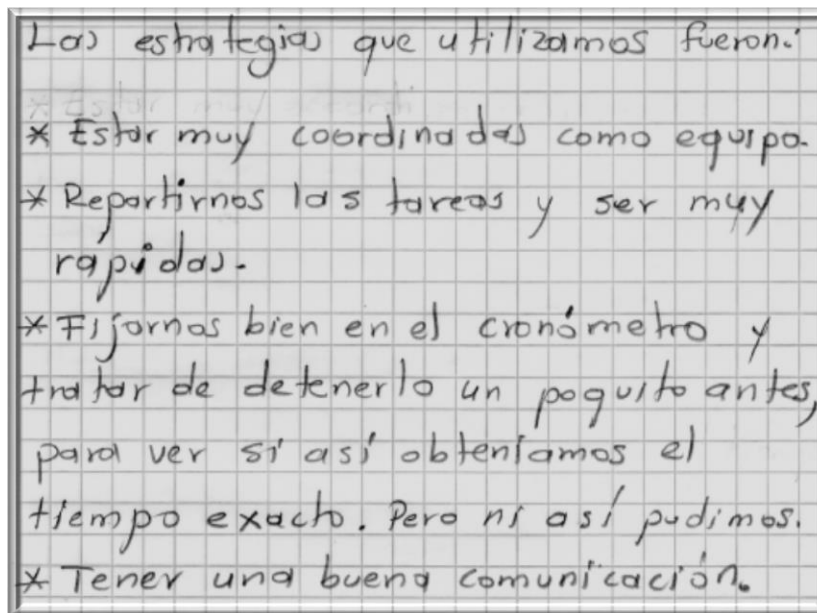 Las estrategias que utilizamos fueron:
* Estar muy coordinadas como equipo.
* Repartirnos las tareas y ser muy
rápidas.
* Fijarnos bien en el cronómetro y
tratar de detenerlo un poquito antes,
para ver si así obteníamos el
tiempo exacto. Pero ni así pudimos.
* Tener una buena comunicación.